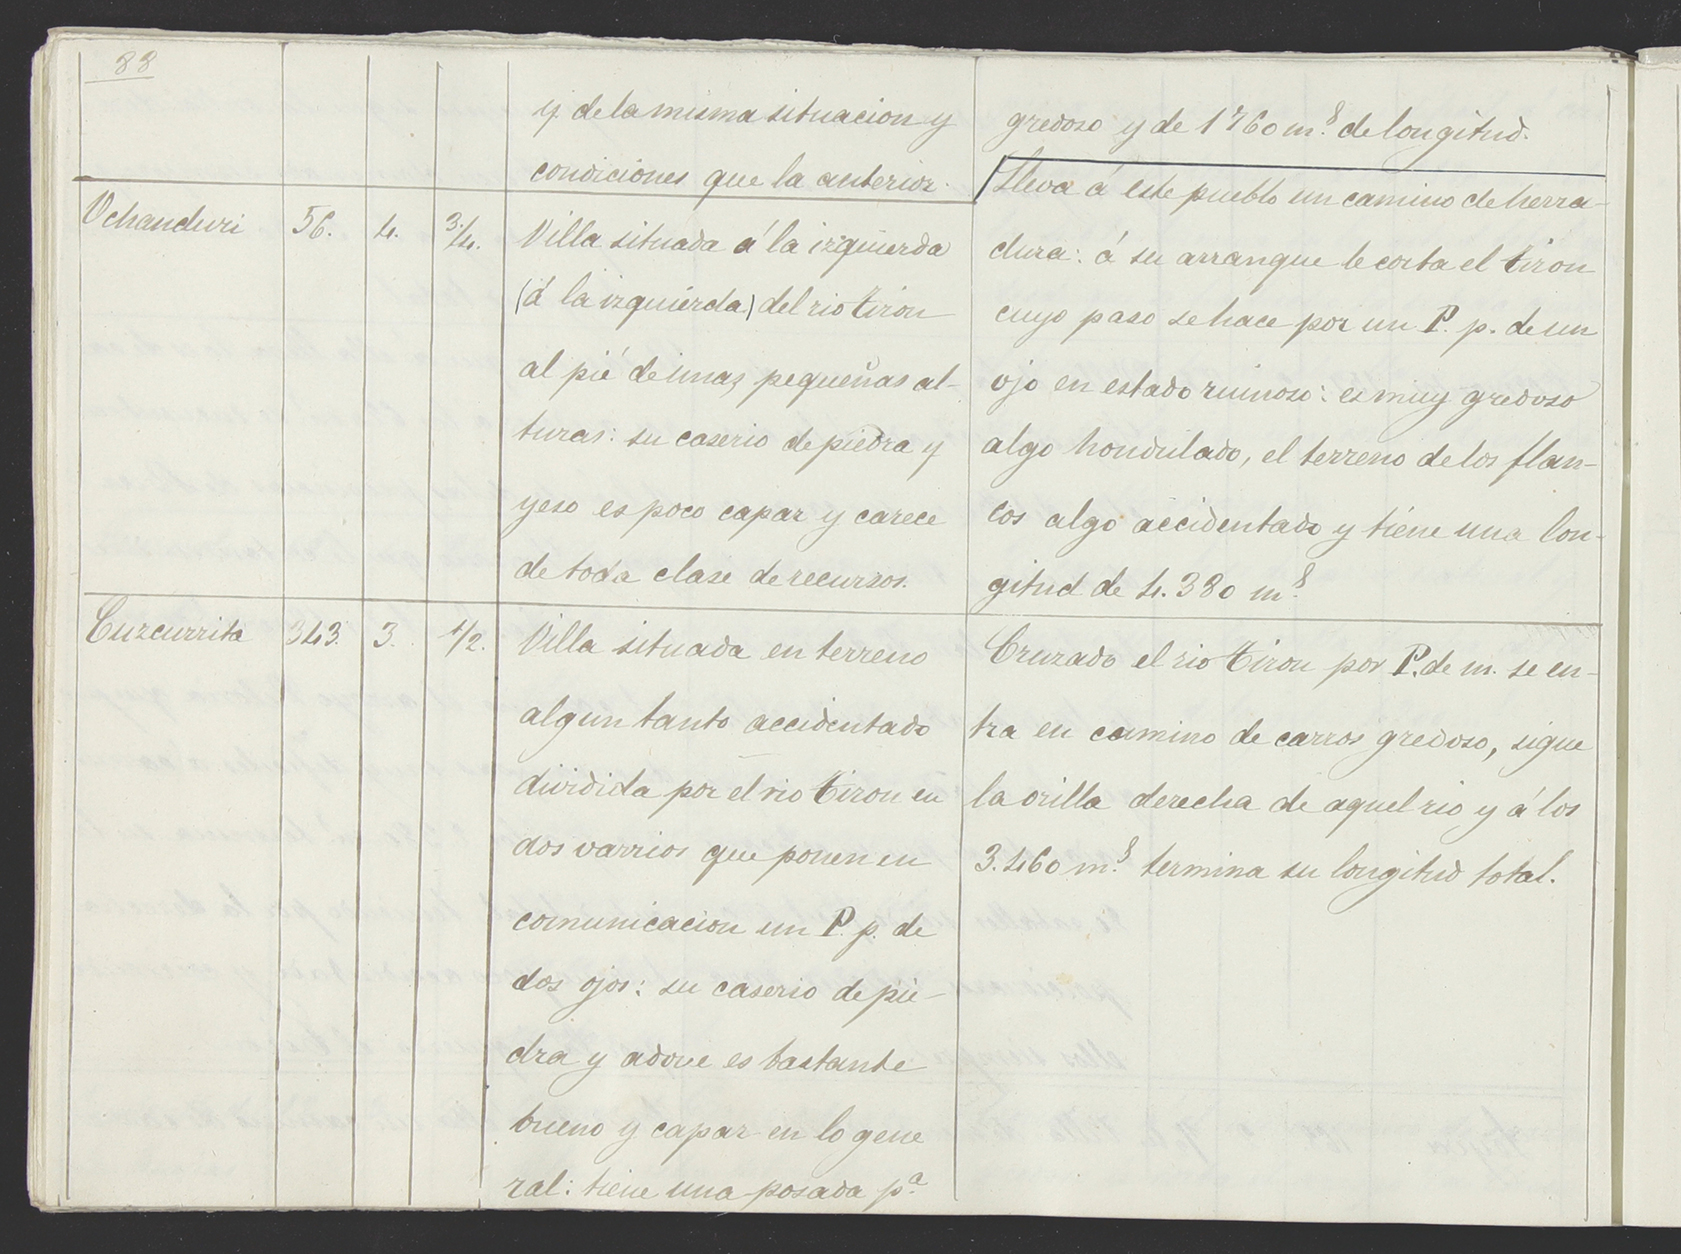 88
y de la misma situacion y
condiciones que la anterior.
gredoso y de 1760 m.s de longitud.
Ochanduri
56.
4.
3/4.
Villa situada á la izquierda
(á la izquierda) del rio Tiron
al pié de unas pequeñas al-
turas: su caserio de piedra y
yeso es poco capaz y carece
de toda clase de recursos.
Lleva á este pueblo un camino de herra-
dura: á su arranque le corta el Tiron
cuyo paso se hace por un P. p. de un
ojo en estado ruinoso: es muy gredoso
algo hondulado, el terreno de los flan-
cos algo accidentado y tiene una lon-
gitud de 4.380 m.s
Cuzcurrita
343.
3.
1/2.
Villa situada en terreno
algun tanto accidentado
dividida por el rio Tiron en
dos varrios que ponen en
comunicacion un P. p. de
dos ojos: su caserio de pie-
dra y adove es bastante
bueno y capaz en lo gene
ral: tiene una posada p.a
Cruzado el rio Tiron por P. de m. se en-
tra en camino de carros gredoso, sigue
la orilla derecha de aquel rio y á los
3.460 m.s termina su longitud total.